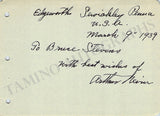 Edgeworth Sewickley Penna
U.S.A.
March 9th 1939
To Bruce Stevens
With best wishes of
Arthur Nevin
TAMINO